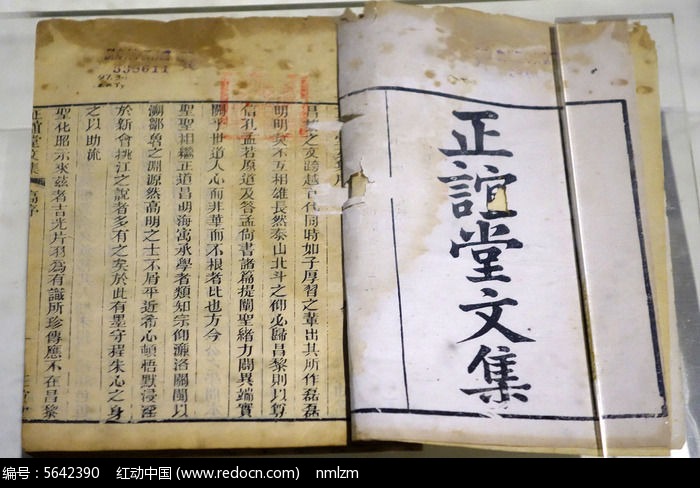 正誼堂文集
昌黎之文跨越古代同時如子厚習之輩出其所作磊磊
明明矣不互相雄長然泰山北斗之仰必歸昌黎則以算
信孔孟若原道及答孟尚書諸篇提闡聖緒力闢異端實
關乎世道人心而非華而不根者比也方今
聖聖相繼正道昌明海寓承學者類知宗仰濂洛關閩以
溯鄒魯之淵源然高明之士不屑平近希心頓悟默浸淫
於新會姚江之說者多有之矣於此有墨守程朱心之身
之以助流
聖化昭示來茲者吉光片羽為有識所珍傳應不在昌黎
正誼堂文集 高序
335611
编号：5642390 红动中国 (www.redocn.com) nmlzm